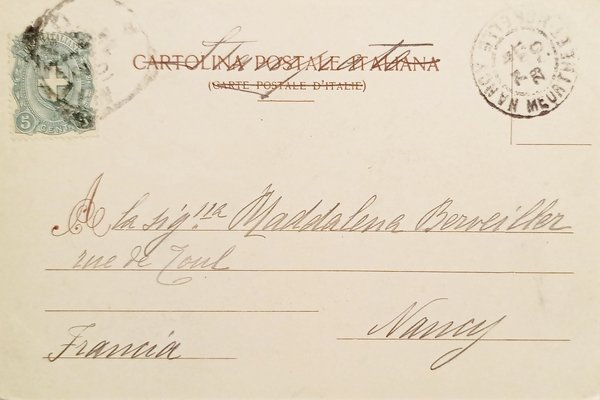 CARTOLINA POSTALE ITALIANA
Stampata
(CARTE POSTALE D'ITALIE)
5 CENT 5
NANCY MEURTHE
A la sig.na Maddalena Berveiller
rue de Toul
Nancy
Francia